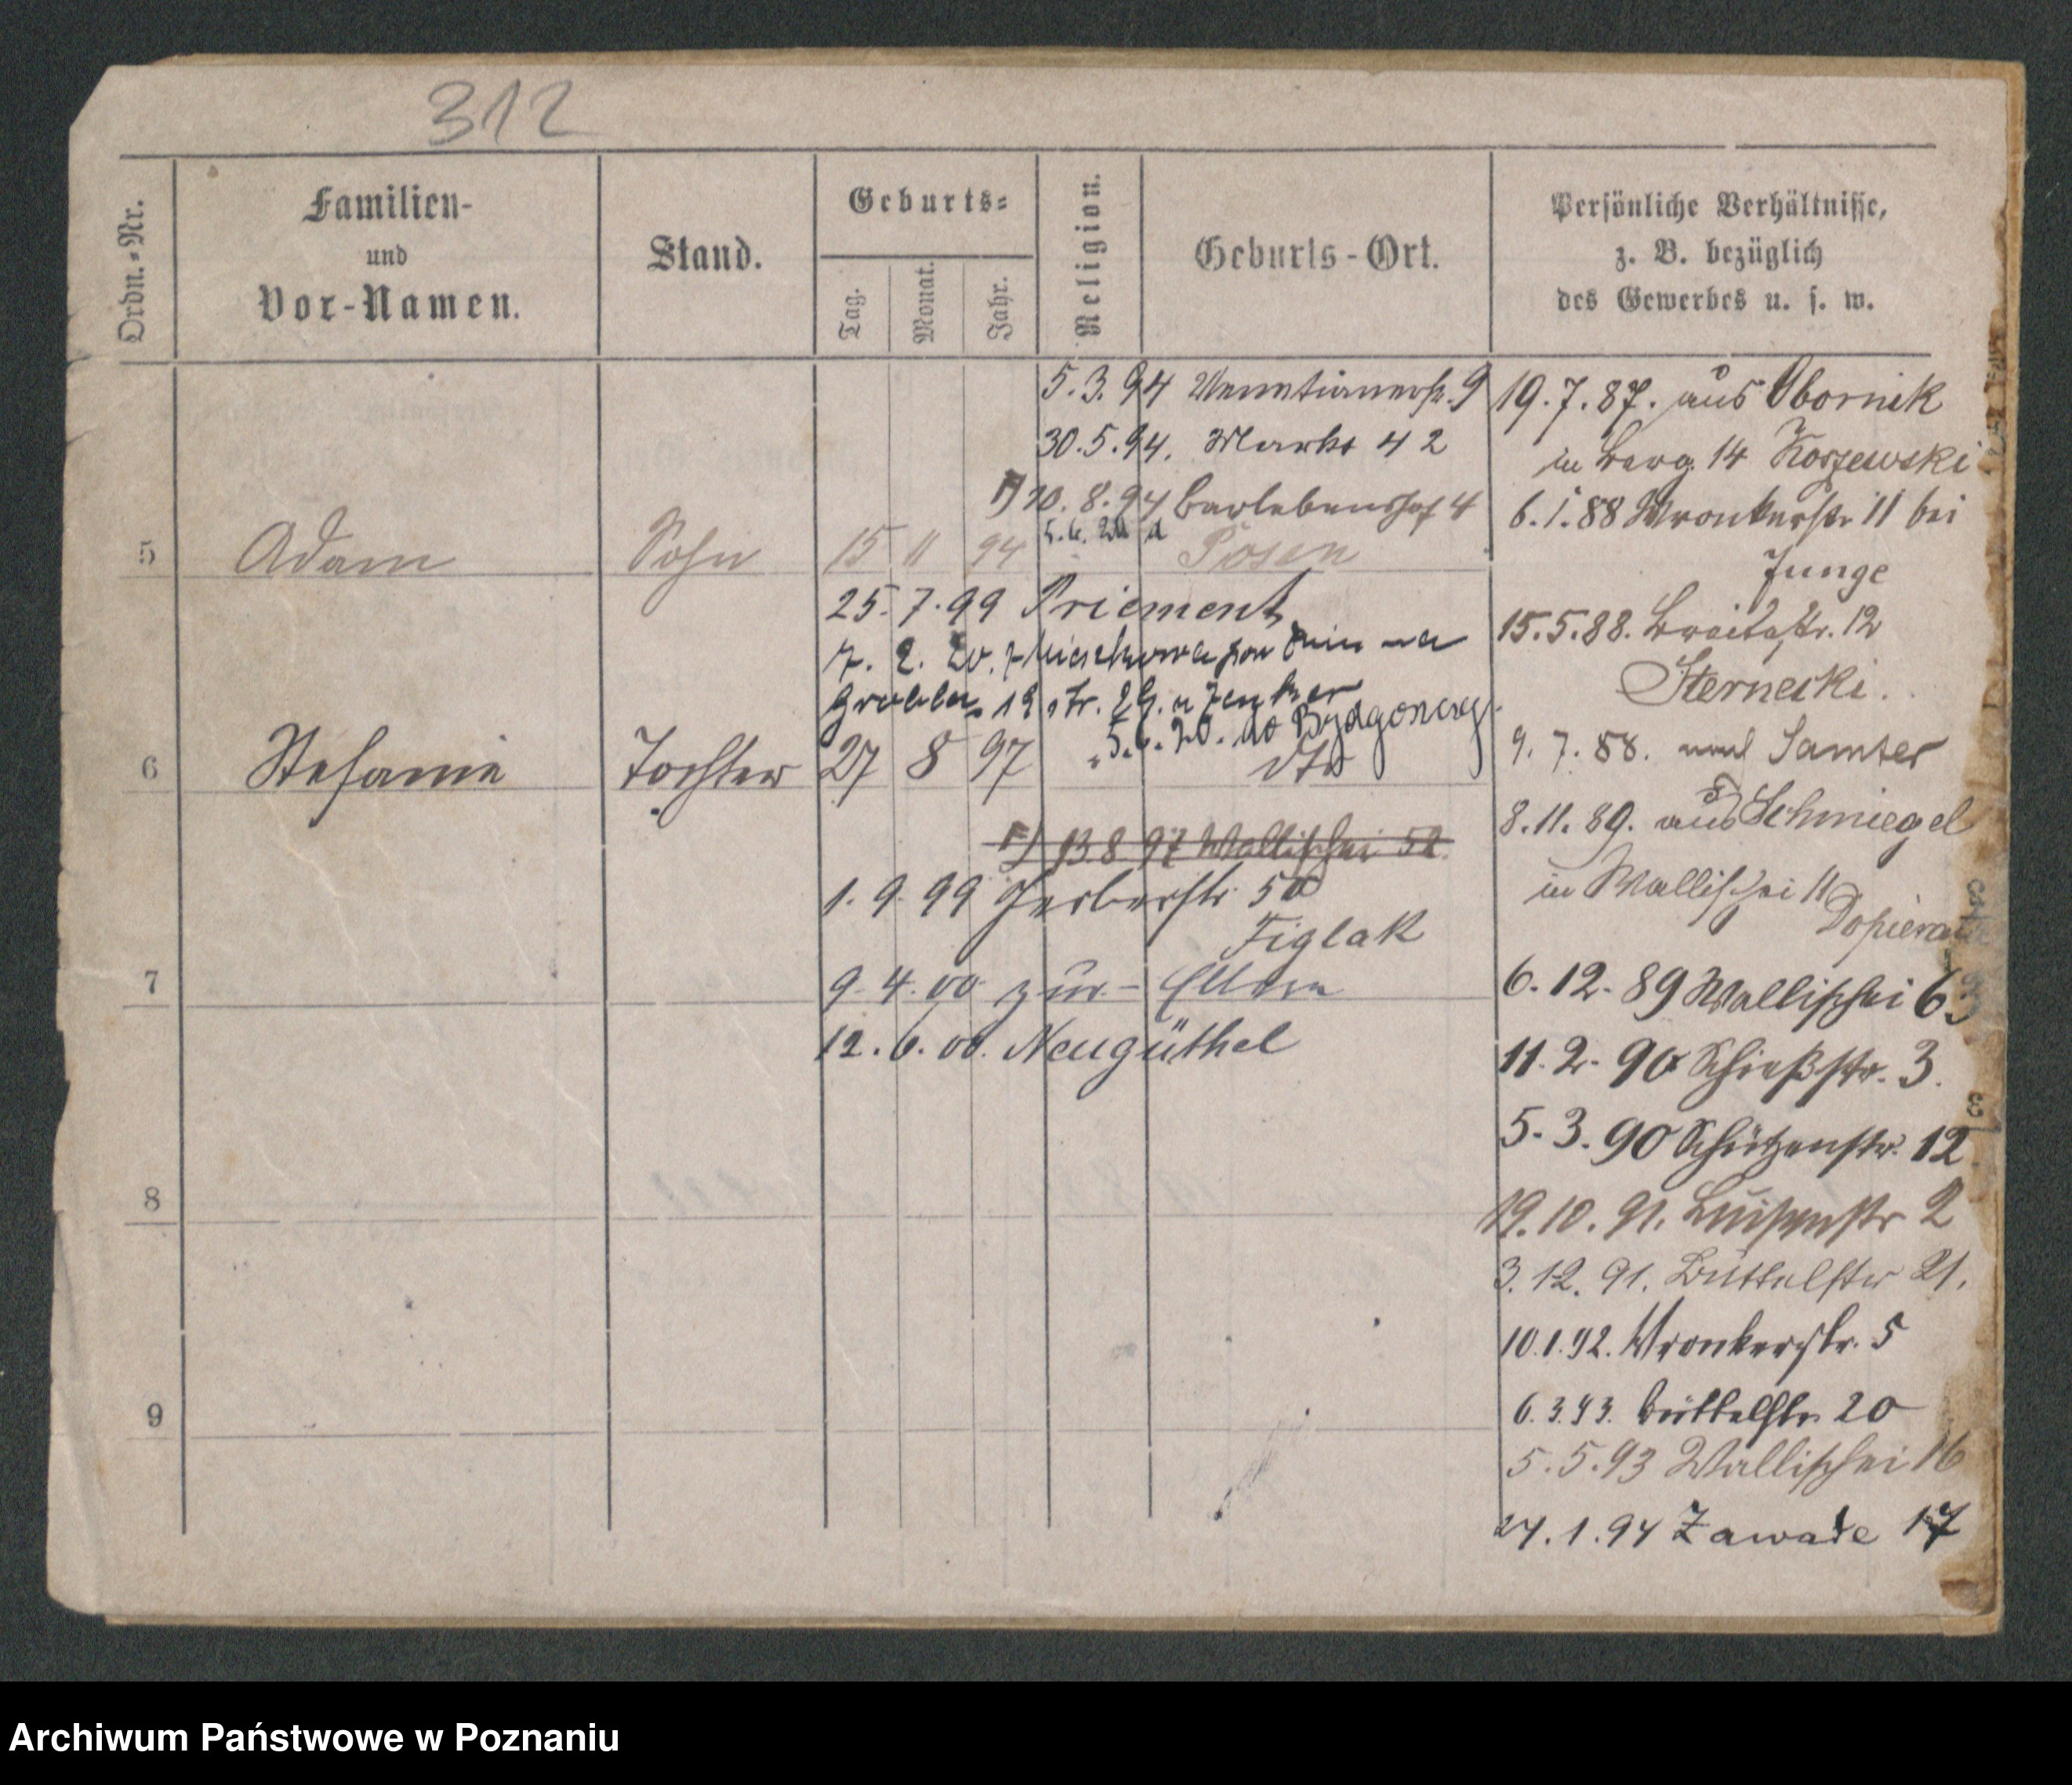 312
Ordn.-Nr.
Familien-
und
Vor-Namen.
Stand.
Geburts-
Tag.
Monat.
Jahr.
Religion.
Geburts-Ort.
Persönliche Verhältnisse,
z. B. bezüglich
des Gewerbes u. s. w.
5.3.94 Venetianerstr. 9
30.5.94. Markt 42
10.8.94 Berlebenshof 4
5 Adam Sohn 15 11 94 Posen
25.7.99 Priement
7. 2. 20.
Grobla 12 str.
5.6.20. do Bydgoszczy
6 Stefanie Tochter 27 8 97 dto
13.8.97 Wallischei 52
1.9.99 Gerberstr. 50
Figlak
7
9.4.00 zur Eltern
12.6.00. Neugüthel
8
9
19.7.87. aus Obornik
in Berg. 14 Koszewski
6.1.88 Wronkerstr 11 bei
Junge
15.5.88. Breitestr. 12
Sternecki.
9.7.88. nach Samter
8.11.89. aus Schmiegel
in Wallischei 11
6.12.89 Wallischei 63
11.2.90 Schießstr. 3.
5.3.90 Schützenstr. 12
19.10.91. Luisenstr 2
3.12.91. Büttelstr 21.
10.1.92. Wronkerstr. 5
6.3.93. Büttelstr. 20
5.5.93 Wallischei 16
24.1.94 Zawade 17
Archiwum Państwowe w Poznaniu